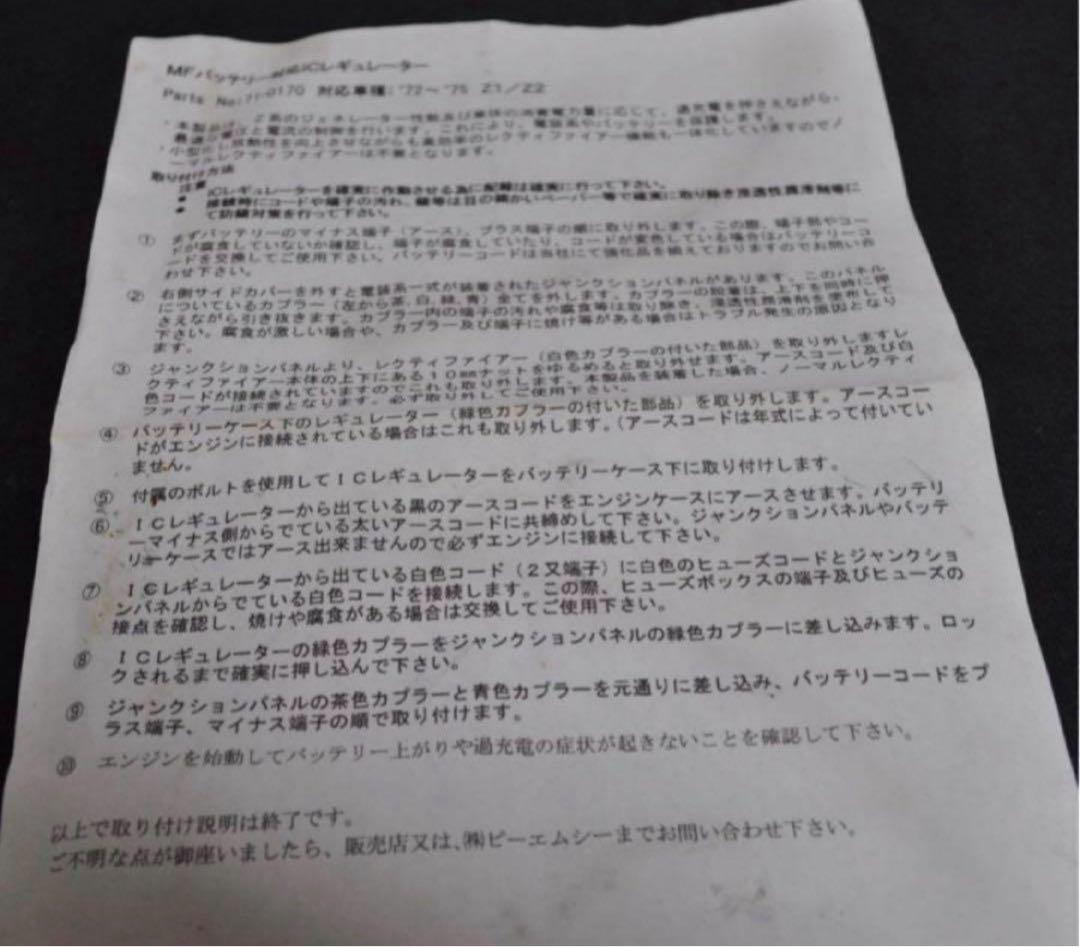 MFバッテリー対応ICレギュレーター
Parts No:71-0170 対応車種:'72~'75 Z1/Z2
本製品は、Z系のジェネレーター性能及び車体の消費電力量に応じて、過充電を押さえながら、
最適な電圧と電流の制御を行います。これにより、電装系やバッテリーを保護します。
小型化し放熱性を向上させながらも高効率のレクティファイアー機能も一体化していますのでノ
ーマルレクティファイアーは不要となります。
取り付け方法
注意
● ICレギュレーターを確実に作動させる為に配線は確実に行って下さい。
● 接続時にコードや端子の汚れ、錆等は目の細かいペーパー等で確実に取り除き浸透性潤滑剤等に
て防錆対策を行って下さい。
① まずバッテリーのマイナス端子(アース)、プラス端子の順に取り外します。この際、端子部やコー
ドが腐食していないか確認し、端子が腐食していたり、コードが変色している場合はバッテリーコ
ードを交換してご使用下さい。バッテリーコードは当社にて強化品を揃えておりますのでお問い合
わせ下さい。
② 右側サイドカバーを外すと電装系一式が装着されたジャンクションパネルがあります。このパネル
についているカプラー(左から茶、白、緑、青)全てを外します。カプラーの脱着は、上下を同時に押
さえながら引き抜きます。カプラー内の端子の汚れや腐食等は取り除き、浸透性潤滑剤を塗布して
下さい。腐食が激しい場合や、カプラー及び端子に焼け等がある場合はトラブル発生の原因となり
ます。
③ ジャンクションパネルより、レクティファイアー(白色カプラーの付いた部品)を取り外しますレ
クティファイアー本体の上下にある10mmナットをゆるめると取り外せます。アースコード及び白
色コードが接続されていますのでこれも取り外します。本製品を装着した場合、ノーマルレクティ
ファイアーは不要となります。必ず取り外してご使用下さい。
④ バッテリーケース下のレギュレーター(緑色カプラーの付いた部品)を取り外します。アースコー
ドがエンジンに接続されている場合はこれも取り外します。(アースコードは年式によって付いてい
ません。
⑤ 付属のボルトを使用してICレギュレーターをバッテリーケース下に取り付けします。
⑥ ICレギュレーターから出ている黒のアースコードをエンジンケースにアースさせます。バッテリ
ーマイナス側からでている太いアースコードに共締めして下さい。ジャンクションパネルやバッテ
リーケースではアース出来ませんので必ずエンジンに接続して下さい。
⑦ ICレギュレーターから出ている白色コード(2又端子)に白色のヒューズコードとジャンクショ
ンパネルからでている白色コードを接続します。この際、ヒューズボックスの端子及びヒューズの
接点を確認し、焼けや腐食がある場合は交換してご使用下さい。
⑧ ICレギュレーターの緑色カプラーをジャンクションパネルの緑色カプラーに差し込みます。ロッ
クされるまで確実に押し込んで下さい。
⑨ ジャンクションパネルの茶色カプラーと青色カプラーを元通りに差し込み、バッテリーコードをプ
ラス端子、マイナス端子の順で取り付けます。
⑩ エンジンを始動してバッテリー上がりや過充電の症状が起きないことを確認して下さい。
以上で取り付け説明は終了です。
ご不明な点が御座いましたら、販売店又は、㈱ピーエムシーまでお問い合わせ下さい。